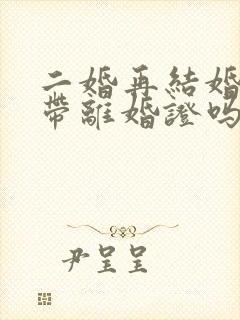 二婚再結婚
帶離婚證嗎
尹呈呈